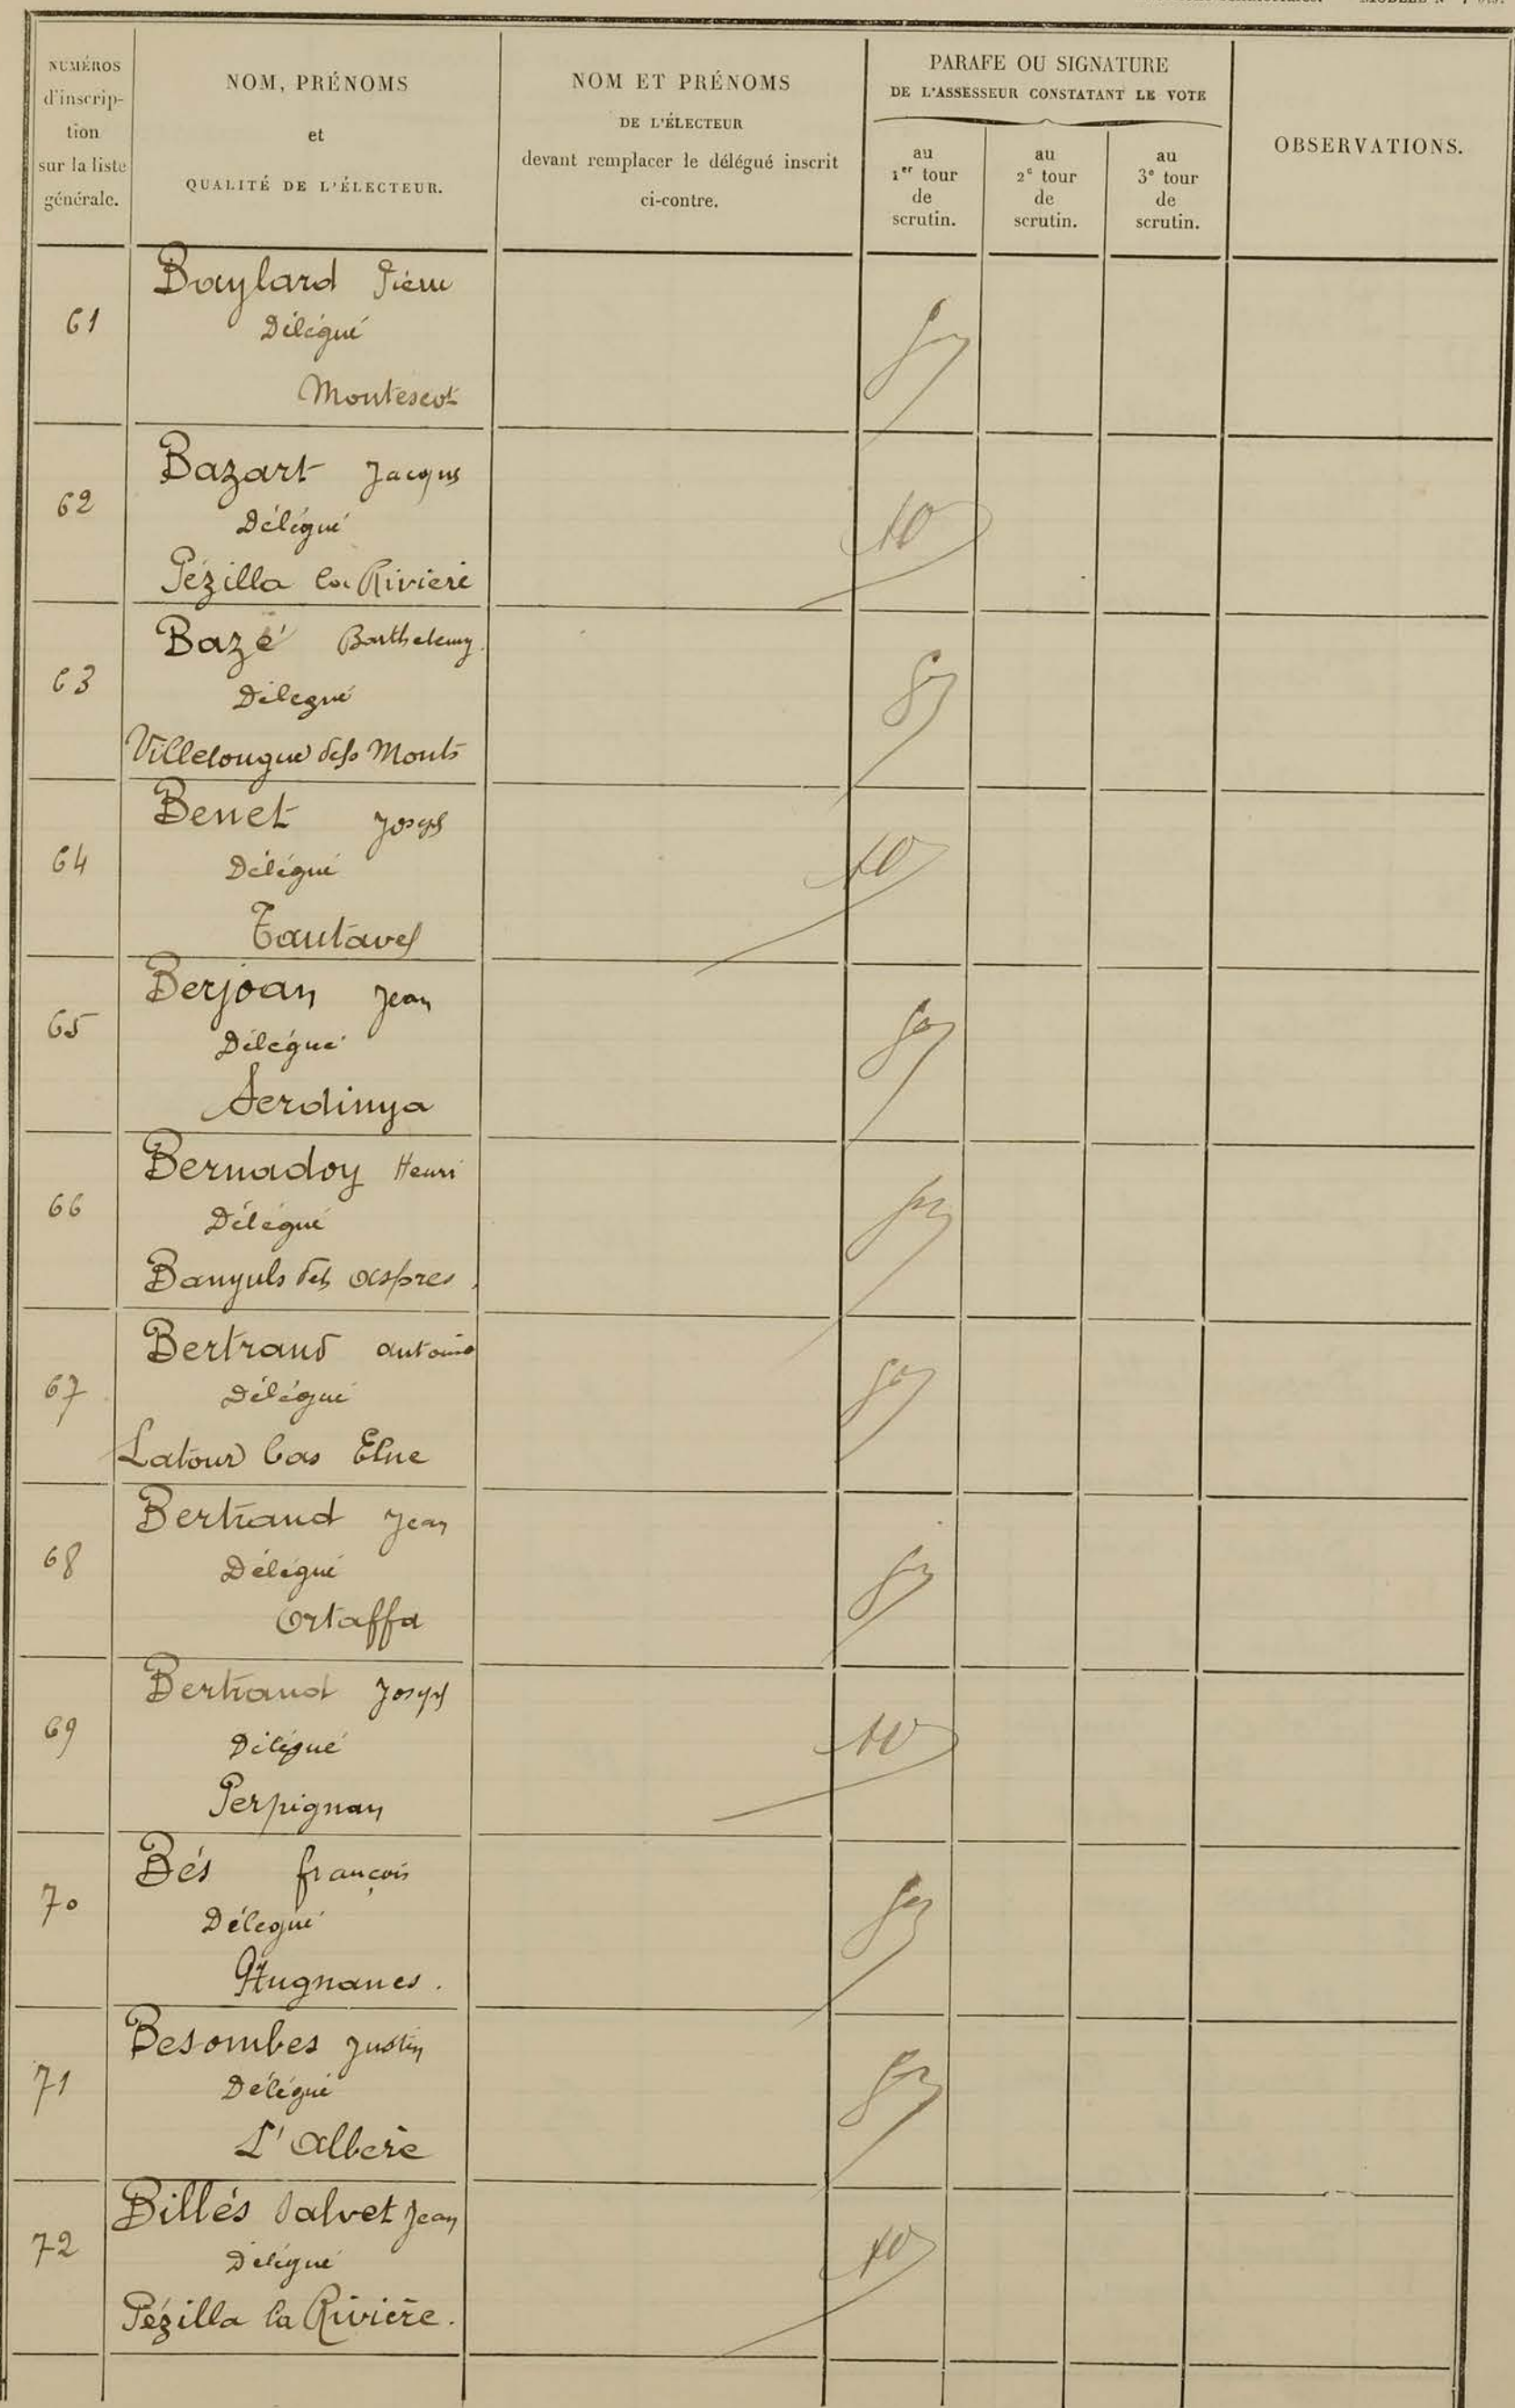 NUMÉROS
d'inscrip-
tion
sur la liste
générale.
NOM, PRÉNOMS
et
QUALITÉ DE L'ÉLECTEUR.
NOM ET PRÉNOMS
DE L'ÉLECTEUR
devant remplacer le délégué inscrit
ci-contre.
PARAFE OU SIGNATURE
DE L'ASSESSEUR CONSTATANT LE VOTE
au
1er tour
de
scrutin.
au
2e tour
de
scrutin.
au
3e tour
de
scrutin.
OBSERVATIONS.
61
Baylard Pierre
Délégué
Montescot
62
Bazart Jacques
Délégué
Pézilla la Rivière
63
Bazé Barthelemy
Délégué
Villelongue dels Monts
64
Benet Joseph
Délégué
Tautavel
65
Berjoan Jean
Délégué
Serdinya
66
Bernadoy Henri
Délégué
Banyuls dels Aspres
67
Bertrand Antoine
Délégué
Latour bas Elne
68
Bertrand Jean
Délégué
Ortaffa
69
Bertrand Joseph
Délégué
Perpignan
70
Bés François
Délégué
Trugnanes.
71
Besombes Justin
Délégué
L'Albère
72
Billés Salvet Jean
Délégué
Pézilla la Rivière.